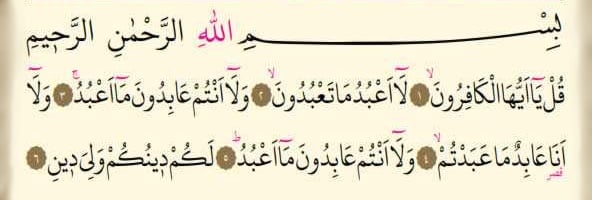 بِسْمِ اللهِ الرَّحْمٰنِ الرَّحِيمِ
قُلْ يَٓا اَيُّهَا الْكَافِرُونَۙ ﴿١﴾ لَٓا اَعْبُدُ مَا تَعْبُدُونَۙ ﴿٢﴾ وَلَٓا اَنْتُمْ عَابِدُونَ مَٓا اَعْبُدُۚ ﴿٣﴾ وَلَٓا
اَنَا۬ عَابِدٌ مَا عَبَدْتُمْۙ ﴿٤﴾ وَلَٓا اَنْتُمْ عَابِدُونَ مَٓا اَعْبُدُۜ ﴿٥﴾ لَكُمْ دِينُكُمْ وَلِيَ دِينِ ﴿٦﴾